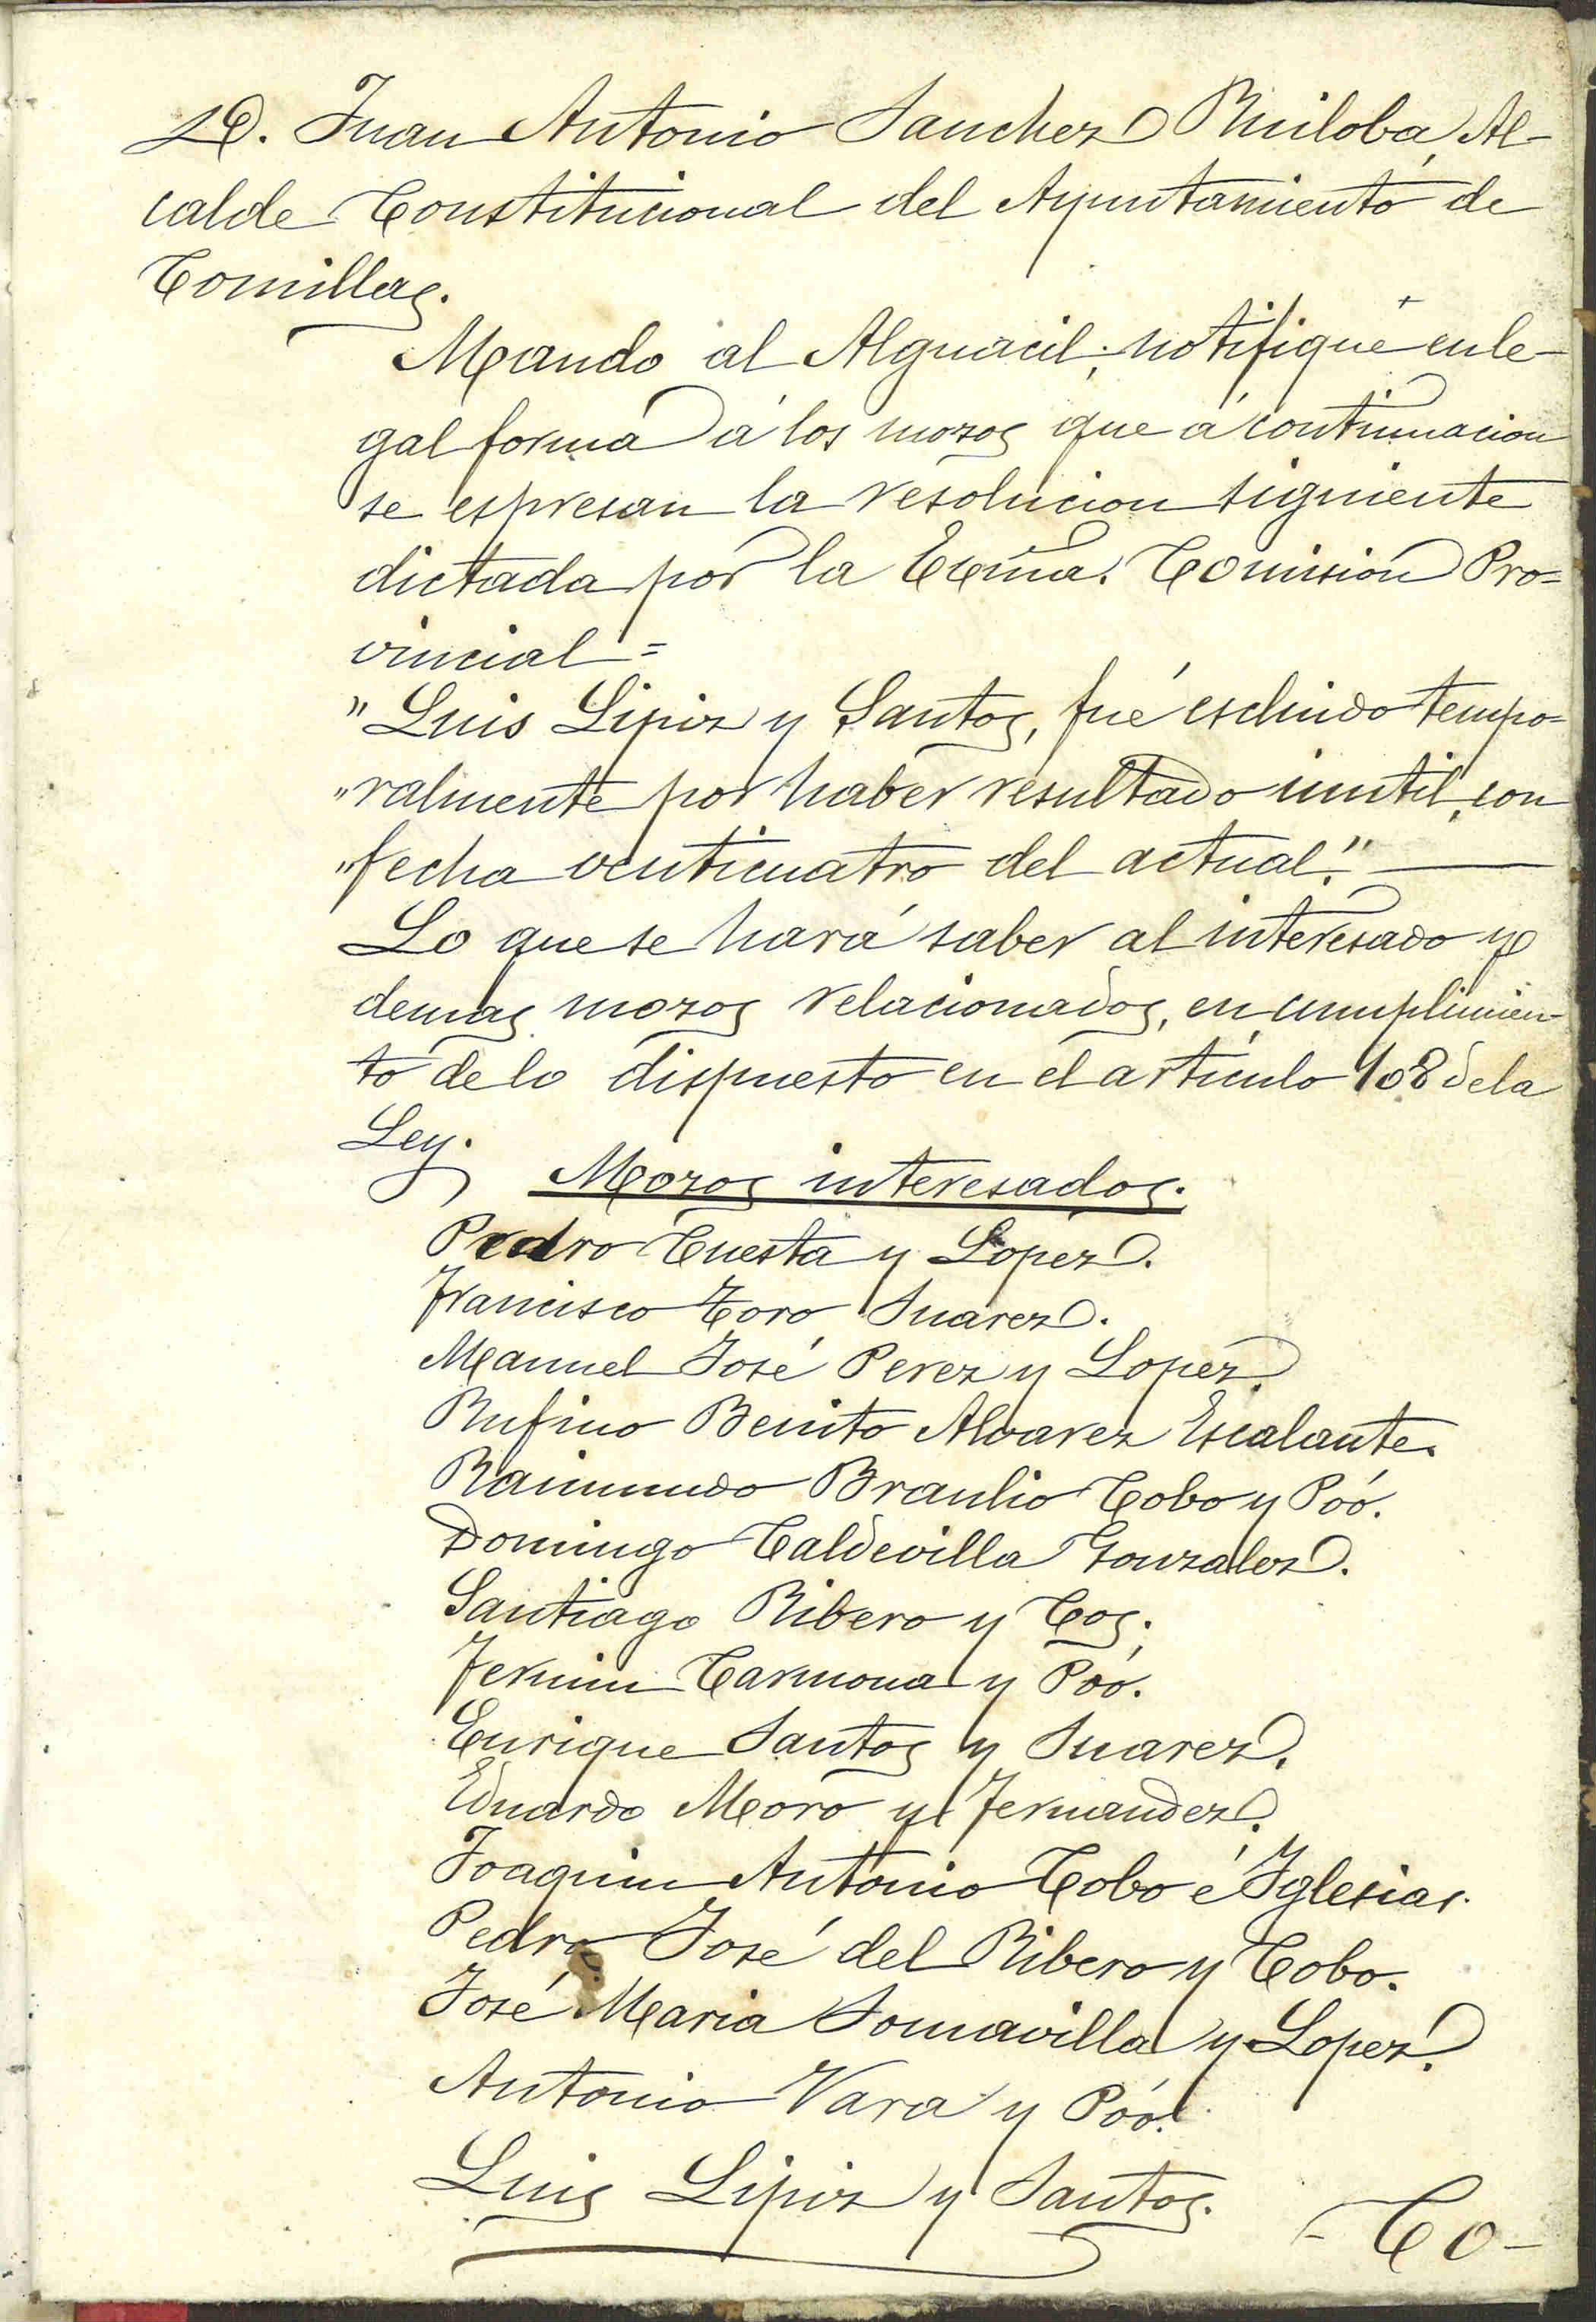 D. Juan Antonio Sanchez Ruiloba, Al-
calde Constitucional del Ayuntamiento de
Comillas.
Mando al Alguacil; notifique en le-
gal forma á los mozos que á continuacion
se espresan la resolucion siguiente
dictada por la Exma. Comisión Pro=
vincial=
"Luis Lipiz y Santos, fué escluido tempo=
"ralmente por haber resultado inutil, con
"fecha venticuatro del actual."
Lo que se hará saber al interesado y
demas mozos relacionados, en cumplimien-
to de lo dispuesto en el artículo 108 de la
Ley.
Mozos interesados.
Pedro Cuesta y Lopez.
Francisco Toro Suarez.
Manuel José Perez y Lopez.
Rufino Benito Alvarez Escalante.
Raimundo Braulio Cobo y Poó.
Domingo Caldevilla Gonzalez.
Santiago Ribero y Cos.
Fermin Carmona y Poó.
Enrique Santos y Suarez.
Eduardo Moro y Fernandez.
Joaquin Antonio Cobo é Iglesias.
Pedro José del Ribero y Cobo.
José Maria Somavilla y Lopez.
Antonio Vara y Poó.
Luis Lipiz y Santos.
- Co-